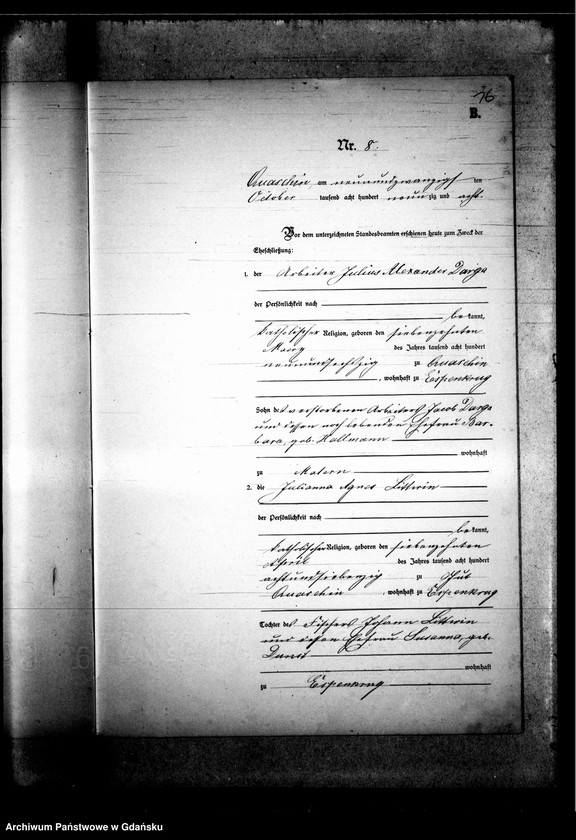 76
B.
Nr. 8.
Quaschin, am neunundzwanzigsten
October tausend acht hundert neunzig und acht.
Vor dem unterzeichneten Standesbeamten erschienen heute zum Zweck der
Eheschließung:
1. der Arbeiter Julius Alexander Darga
der Persönlichkeit nach
bekannt,
katholischer Religion, geboren den siebenzehnten
März des Jahres tausend acht hundert
neunundsechszig zu Quaschin
, wohnhaft zu Espenkrug
Sohn des verstorbenen Arbeiters Jacob Darga
und dessen noch lebenden Ehefrau Bar-
bara, geb. Hallmann
wohnhaft
zu Matern
2. die Julianna Agnes Litterin
der Persönlichkeit nach
bekannt,
katholischer Religion, geboren den siebenzehnten
April des Jahres tausend acht hundert
achtundsiebenzig zu Gut
Quaschin , wohnhaft zu Espenkrug
Tochter des Fischers Johann Litterin
und dessen Ehefrau Susanna, geb.
wohnhaft
zu Espenkrug
Archiwum Państwowe w Gdańsku